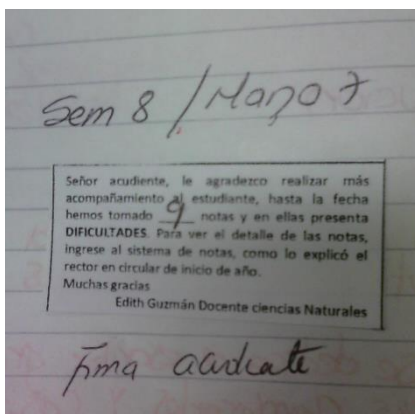 Sem 8 / Marzo 7
Señor acudiente, le agradezco realizar más
acompañamiento al estudiante, hasta la fecha
hemos tomado 9 notas y en ellas presenta
DIFICULTADES. Para ver el detalle de las notas,
ingrese al sistema de notas, como lo explicó el
rector en circular de inicio de año.
Muchas gracias
Edith Guzmán Docente ciencias Naturales
Firma acudiente